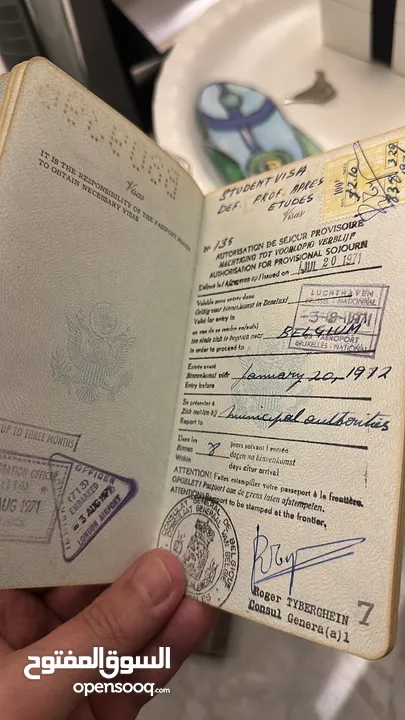 Visas
IT IS THE RESPONSIBILITY OF THE PASSPORT BEARER
TO OBTAIN NECESSARY VISAS
UP TO THREE MONTHS
AUG 1971
OFFICER
(213)
EMBARKED
3 AUG 1971
LONDON AIRPORT
STUDENT VISA
DEF. PROF. APRES
ETUDES
Visas
$2.10
Nº 135
AUTORISATION DE SEJOUR PROVISOIRE
MACHTIGING TOT VOORLOPIG VERBLIJF
AUTHORISATION FOR PROVISIONAL SOJOURN
Délivré le / Afgegeven op / Issued on JUL 20 1971
LUCHTHAVEN
BRUSSEL - NATIONAAL
-3-8-1971
AEROPORT
BRUXELLES - NATIONAL
Valable pour entrée dans
Geldig voor binnenkomst in Benelux
Valid for entry in
en vue de se rendre en(au)
ten einde zich te begeven naar BELGIUM
in order to proceed to
Entrée avant
Binnenkomst vóór January 20, 1972
Entry before
Se présenter à
Zich melden bij municipal authorities
Report to
Dans les jours suivant l'entrée
Binnen 8 dagen na binnenkomst
Within days after arrival
ATTENTION! Faites estampiller votre passeport à la frontière.
OPGELET! Paspoort aan de grens laten afstempelen.
ATTENTION! Passport to be stamped at the frontier.
CONSULAT GENERAL DE BELGIQUE
Roger TYBERGHEIN
Consul Genera(a)l
7
السوق المفتوح
opensooq.com